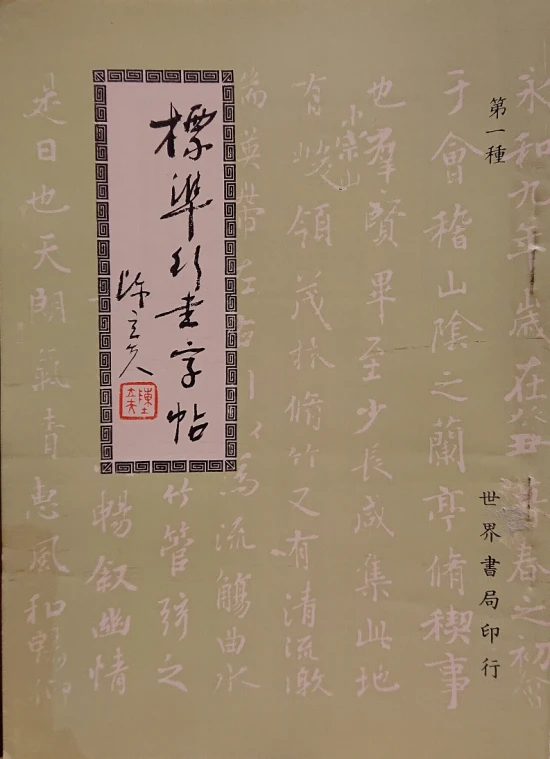 第一種
世界書局印行
永和九年歲在癸丑暮春之初會
于會稽山陰之蘭亭脩稧事
也羣賢畢至少長咸集此地
崇山
有峻領茂林脩竹又有清流激
湍映帶左右引以為流觴曲水
竹管弦之
暢叙幽情
是日也天朗氣清惠風和暢仰
標準行書字帖
陳立夫
陳立夫